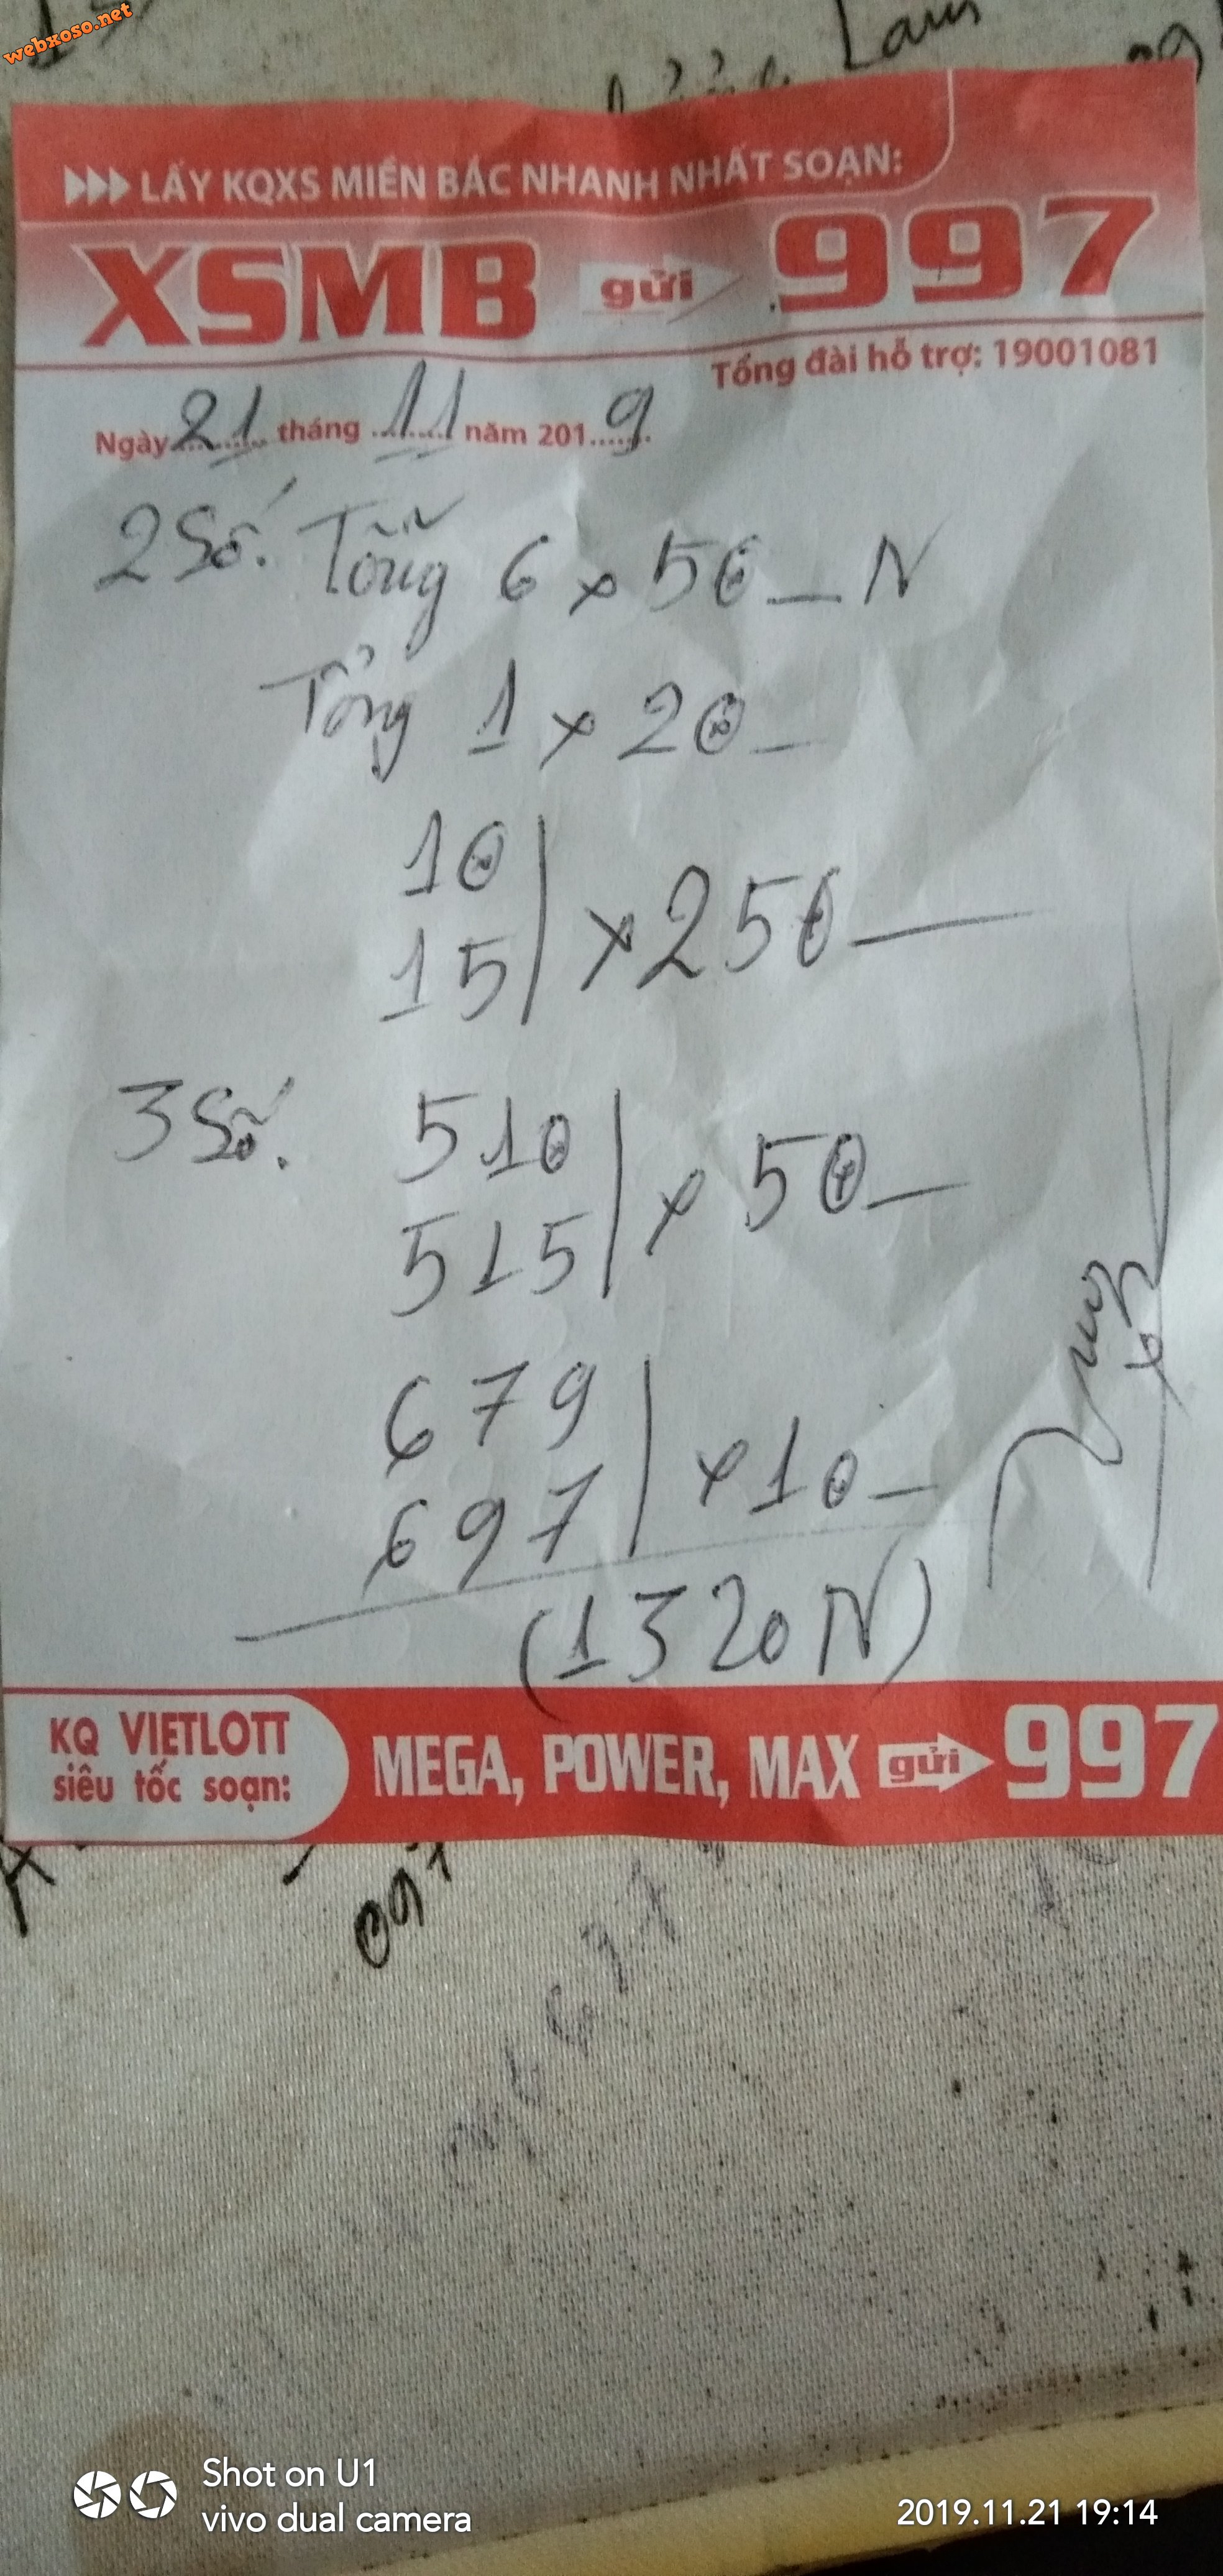 webxoso.net
Lam
LẤY KQXS MIỀN BẮC NHANH NHẤT SOẠN:
XSMB gửi 997
Tổng đài hỗ trợ: 19001081
Ngày 21 tháng 11 năm 2019
2 Số. Tổng 6 x 50 _ N
Tổng 1 x 20 _
10
15 x 250 _
3 Số. 510
515 x 50 _
679
697 x 10 _
(1320 N)
KQ VIETLOTT
siêu tốc soạn:
MEGA, POWER, MAX gửi 997
097
Shot on U1
vivo dual camera
2019.11.21 19:14